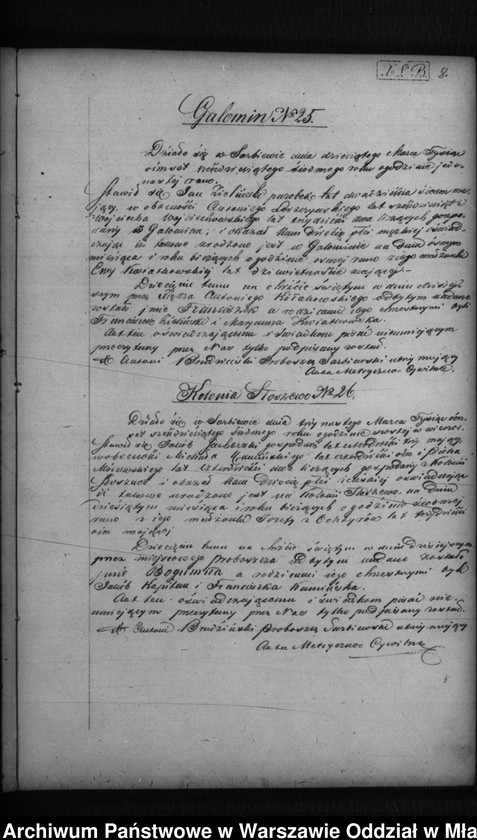 X L B 8.
Galomin No 25.
Działo się w Sarbiewie dnia dziesiątego Marca Tysiąc
ośmset sześćdziesiątego siódmego roku o godzinie jede-
nastej rano.
Stawił się Jan Zieliński parobek lat dwadzieścia siedm ma-
jący, w obecności Antoniego lat
Wojciecha Wojciechowskiego lat trzydzieści dwa liczących gospo-
darzy w Galominie; i okazał Nam Dziecię płci męzkiej oświad-
czając iż takowe urodzone jest w Galominie na dniu ósmym
miesiąca i roku bieżących o godzinie ósmej rano z jego małżonki
Ewy Kwiatkowskiej lat mającej.
Dziecięciu temu na chrzcie świętym w dniu dzisiej-
szym przez Księdza Antoniego odbytym nadane
zostało imie Franciszek a rodzicami jego chrzestnymi byli
Franciszek Zieliński i Maryanna Kwiatkowska.
Akt ten oświadczającemu i świadkom pisać nieumiejącym
przeczytany przez Nas tylko podpisany został.
X Antoni Brudziński Proboszcz Sarbiewski utrzymujący
Akta Metryczno Cywilne.
Kolonia Stoszewo No 26.
Działo się w Sarbiewie dnia trzynastego Marca Tysiąc ośm-
set sześćdziesiątego siódmego roku o godzinie czwartej wieczór.
Stawił się Jakób gospodarz lat czterdzieści trzy mający
w obecności Michała Kamińskiego lat czterdzieści ośm i
Majewskiego lat czterdzieści dwa liczących gospodarzy z Kolonii
Stoszewo i okazał Nam Dziecię płci żeńskiej oświadczając
iż takowe urodzone jest na Kolonii Stoszewo na dniu
dziesiątym miesiąca i roku bieżących o godzinie siódmej
rano z jego małżonki Józefy z lat trzydzieści
ośm mającej
Dziecięciu temu na chrzcie świętym w dniu dzisiejszym
przez miejscowego Proboszcza odbytym nadane zostało
imie Bogumiła a rodzicami jego chrzestnymi byli
Jakób i Franciszka Kamińska.
Akt ten oświadczającemu i świadkom pisać nie-
umiejącym przeczytany przez Nas tylko podpisany został.
X Antoni Brudziński Proboszcz Sarbiewski utrzymujący
Akta Metryczno Cywilne
Archiwum Państwowe w Warszawie Oddział w Mła